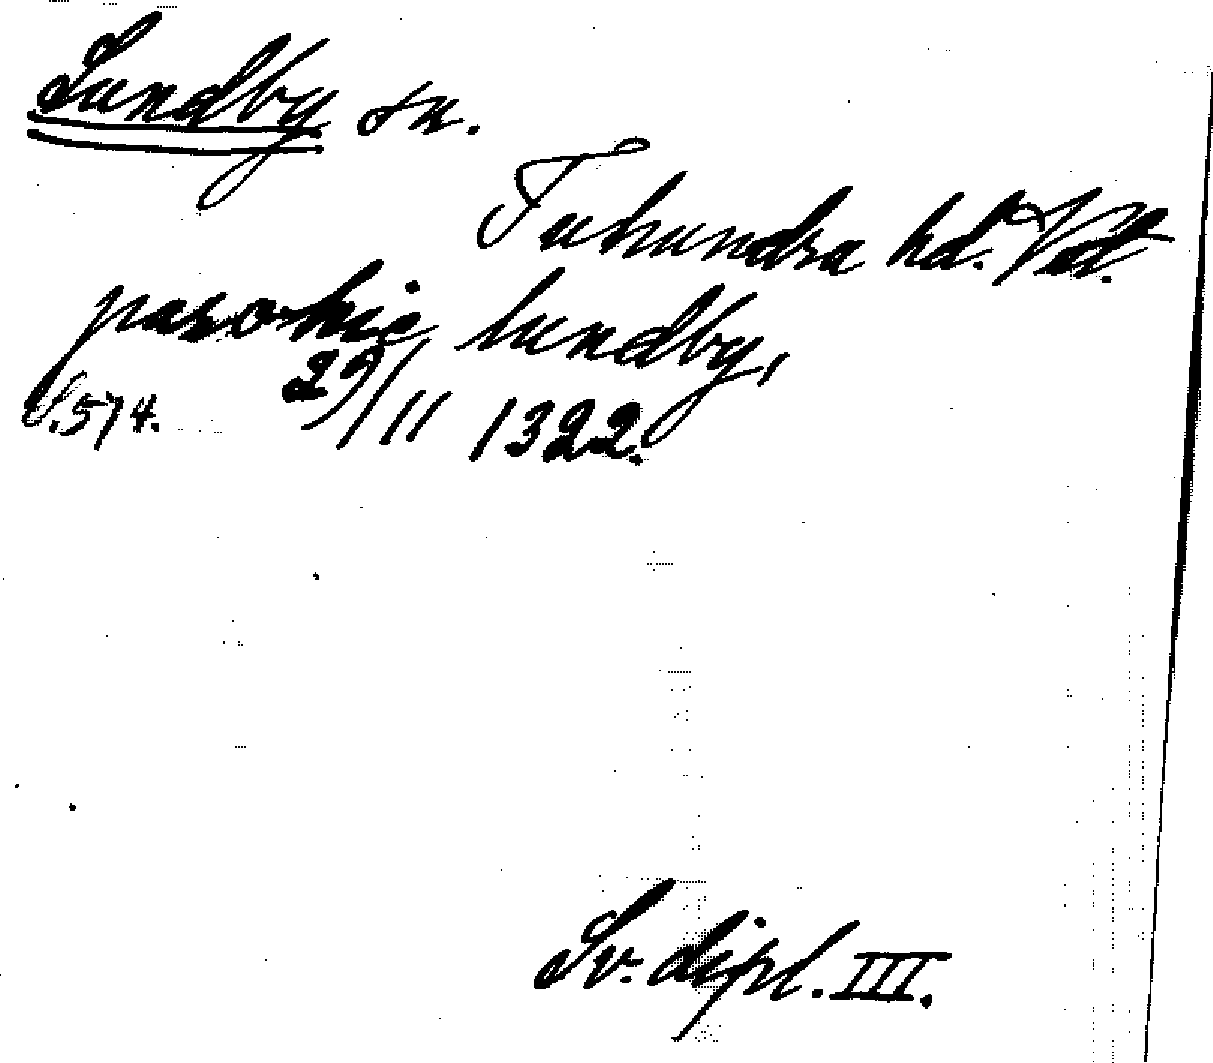 Lundby sn.
Tuhundra hd.
parochie lundby,
S.574. 29/11 1322.
Sv. dipl. III.